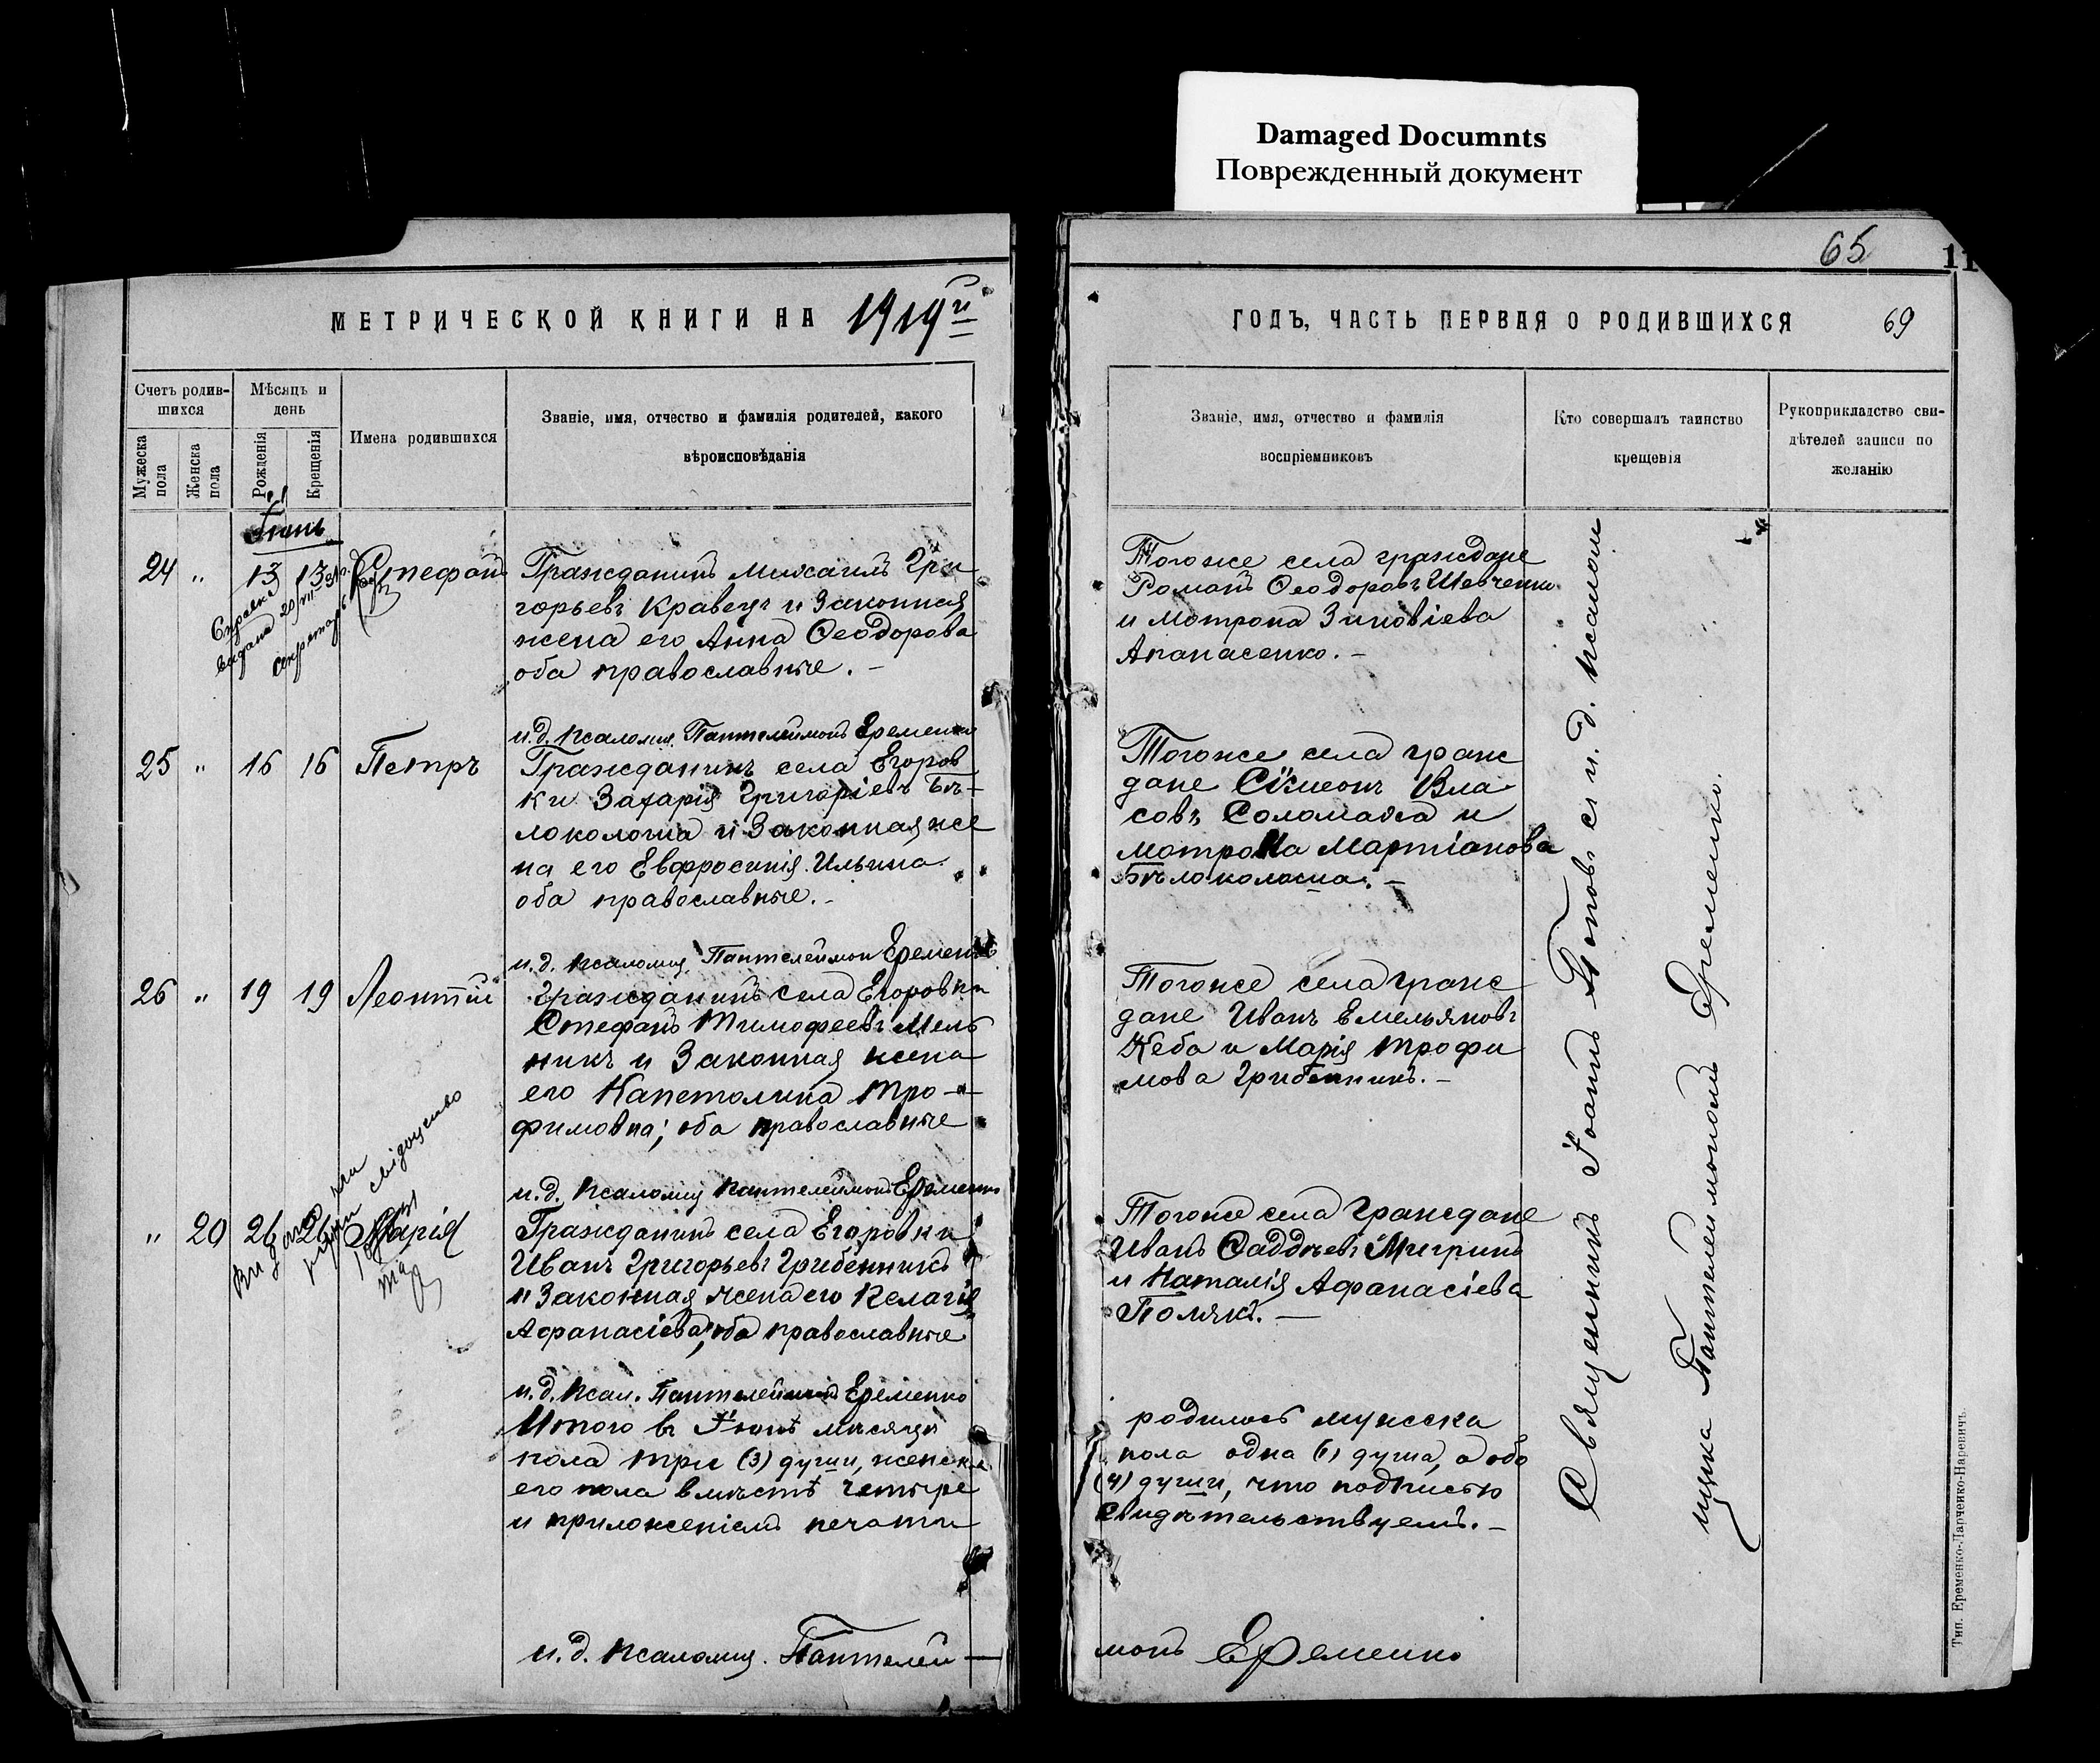 Damaged Documnts
Поврежденный документ
65
11
МЕТРИЧЕСКОЙ КНИГИ НА 1919й
ГОДЪ, ЧАСТЬ ПЕРВАЯ О РОДИВШИХСЯ
69
Счетъ родив-
шихся
Мужеска пола
Женска пола
Мѣсяцъ и
день
Рожденія
Крещенія
Имена родившихся
Званіе, имя, отчество и фамилія родителей, какого
вѣроисповѣданія
Званіе, имя, отчество и фамилія
воспріемниковъ
Кто совершалъ таинство
крещенія
Рукоприкладство сви-
дѣтелей записи по
желанію
Іюнь
24 " 13 13 Стефанъ
Справка
видана
Гражданинъ Михаилъ Гри
горьевъ Кравецъ и законная
жена его Анна Ѳеодорова
оба православные. –
Тогоже села граждане
Романъ Ѳеодоровъ Шевченко
и Матрона Зиновіева
Апанасенко. –
и.д. псаломщ. Пантелеимонъ Еременко
25 " 16 16 Петръ
Гражданинъ села Егоров
ки Захарія Григоріевъ Бѣ-
локолоша и законная же
на его Евфросинія Ильина
оба православные. –
Тогоже села граж
дане Сѵмеонъ Вла
совъ Соломаха и
Матрона Мартіанова
Бѣлоколоша. –
и.д. псаломщ. Пантелеймон Еременко
26 " 19 19 Леонтій
Гражданинъ села Егоровки
Стефанъ Тимофеевъ Мель
никъ и законная жена
его Капетолина Тро-
фимовна; оба православные
Тогоже села граж
дане Иванъ Емельяновъ
Кеба и Марія Трофи
мова Грибенникъ. –
и.д. псаломщ Пантелеймонъ Еременко
" 20 26 26 Марія
свідоцтво
Гражданинъ села Егоровки
Иванъ Григорьевъ Грибенникъ
и законная жена его Пелагія
Афанасіева; оба православные
Тогоже села граждане
Иванъ Ѳаддѣевъ Мигринъ
и Наталія Афанасіева
Полякъ. –
и.д. псал. Пантелеймонъ Еременко
Итого въ Іюнѣ мѣсяцѣ
родилось мужеска
пола три (3) души, женска
его пола
пола одна (1) душа, а обо
его пола вмѣстѣ четыре
(4) души, что подписью
и приложеніемъ печати
свидѣтельствуемъ. –
и.д. псаломщ. Пантелей-
монъ Еременко
Священникъ Іоаннъ Поповъ съ и. д. псалом
щика Пантелеимономъ Еременко.
Тип. Еременко-Ларченко-Наревичъ.